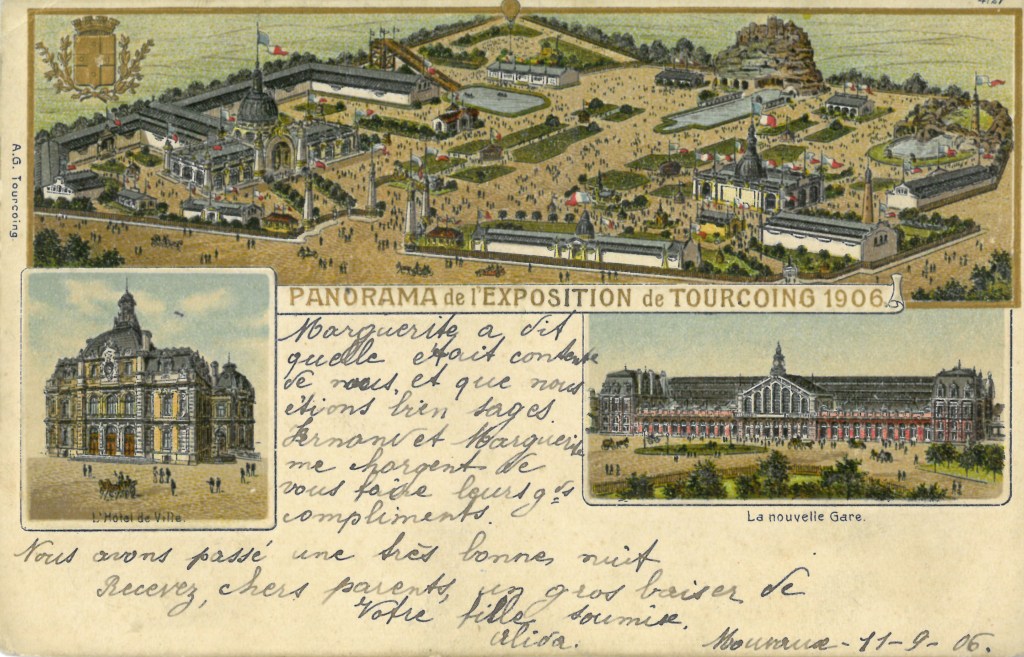 A.G. Tourcoing
PANORAMA de l'EXPOSITION de TOURCOING 1906.
L'Hôtel de Ville.
La nouvelle Gare.
Marguerite a dit
quelle était contente
de nous, et que nous
étions bien sages
Fernand et Marguerite
me chargent de
vous faire leurs gds
compliments.
Nous avons passé une très bonne nuit
Recevez, chers parents, un gros baiser de
Votre fille soumise.
Alida.
Mouvaux - 11-9-06.